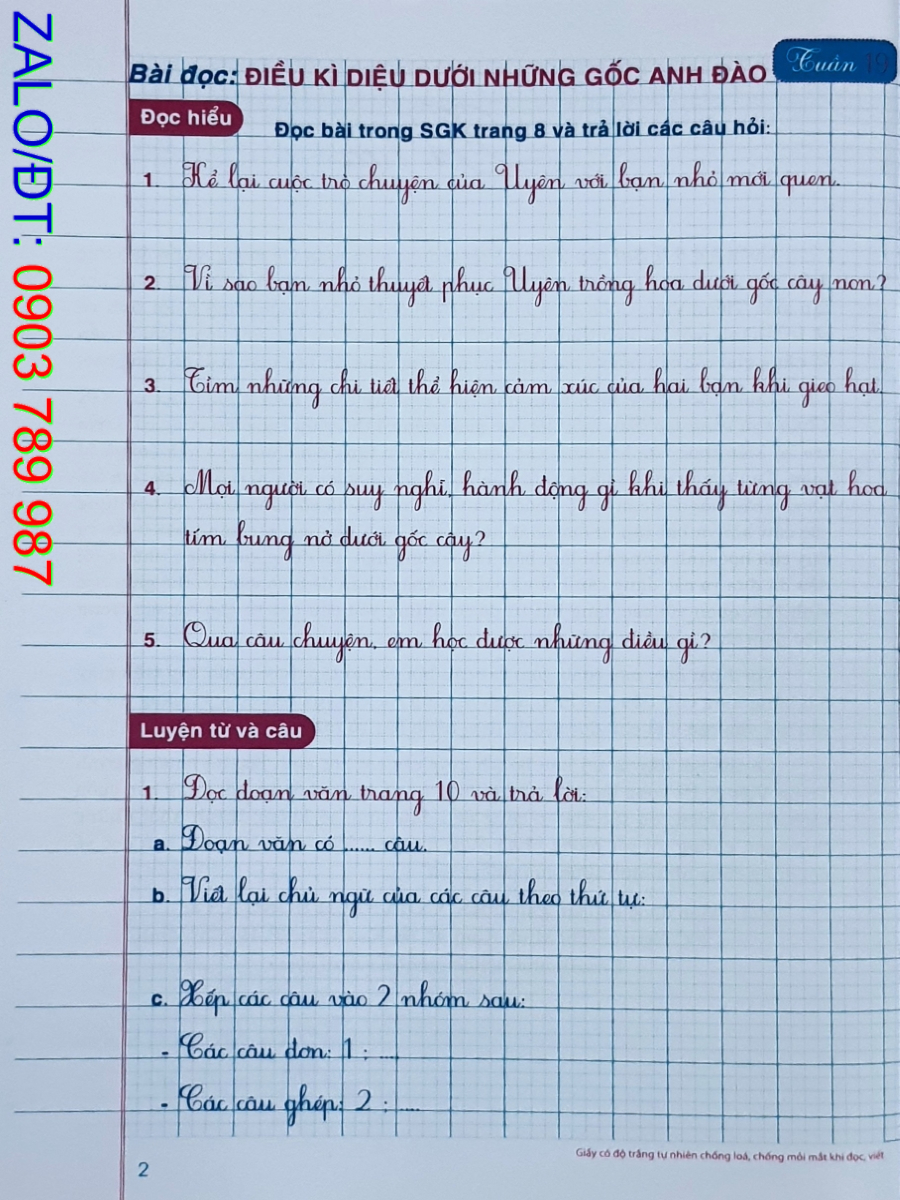 ZALO/ĐT: 0903 789 987
Bài đọc: ĐIỀU KÌ DIỆU DƯỚI NHỮNG GỐC ANH ĐÀO
Tuần 19
Đọc hiểu
Đọc bài trong SGK trang 8 và trả lời các câu hỏi:
1. Kể lại cuộc trò chuyện của Uyên với bạn nhỏ mới quen.
2. Vì sao bạn nhỏ thuyết phục Uyên trồng hoa dưới gốc cây non?
3. Tìm những chi tiết thể hiện cảm xúc của hai bạn khi gieo hạt.
4. Mọi người có suy nghĩ, hành động gì khi thấy từng vạt hoa
tím bung nở dưới gốc cây?
5. Qua câu chuyện, em học được những điều gì?
Luyện từ và câu
1. Đọc đoạn văn trang 10 và trả lời:
a. Đoạn văn có ...... câu.
b. Viết lại chủ ngữ của các câu theo thứ tự:
c. Xếp các câu vào 2 nhóm sau:
- Các câu đơn: 1 ; ....
- Các câu ghép: 2 ; ....
Giấy có độ trắng tự nhiên chống loá, chống mỏi mắt khi đọc, viết
2